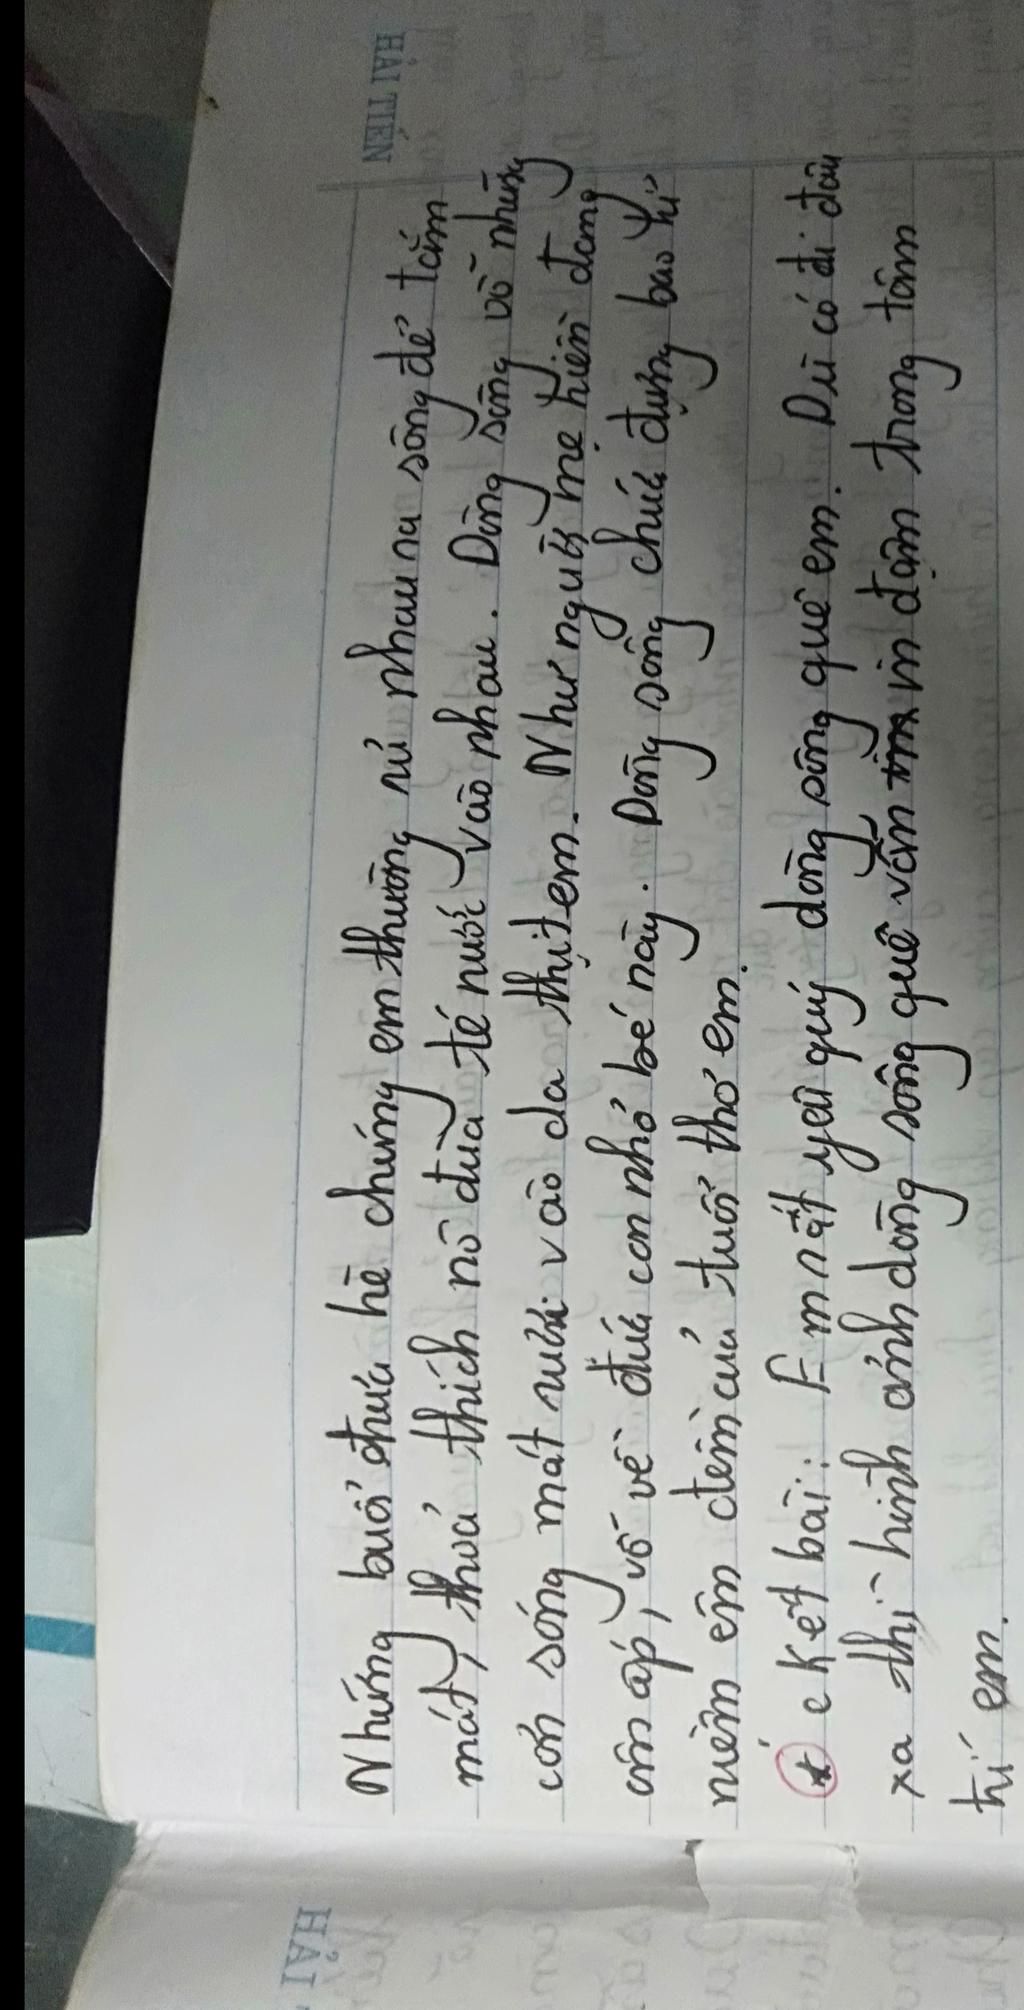 HẢI TIẾN
Những buổi chưa hè chúng em thường rủ nhau ra sông để tắm
mát, thoả thích nô đùa té nước vào nhau. Dòng sông vỗ những
cơn sóng mát rười vào da thịt em. Như người mẹ hiền đang
ôm ấp, vỗ về đứa con nhỏ bé này. Dòng sông chứa đựng bao kỉ
niềm êm đềm của tuổi thơ em.
* Kết bài: Em rất yêu quý dòng sông quê em. Dù có đi đâu
xa thì hình ảnh dòng sông quê vẫn in đậm trong tâm
trí em.
HẢI